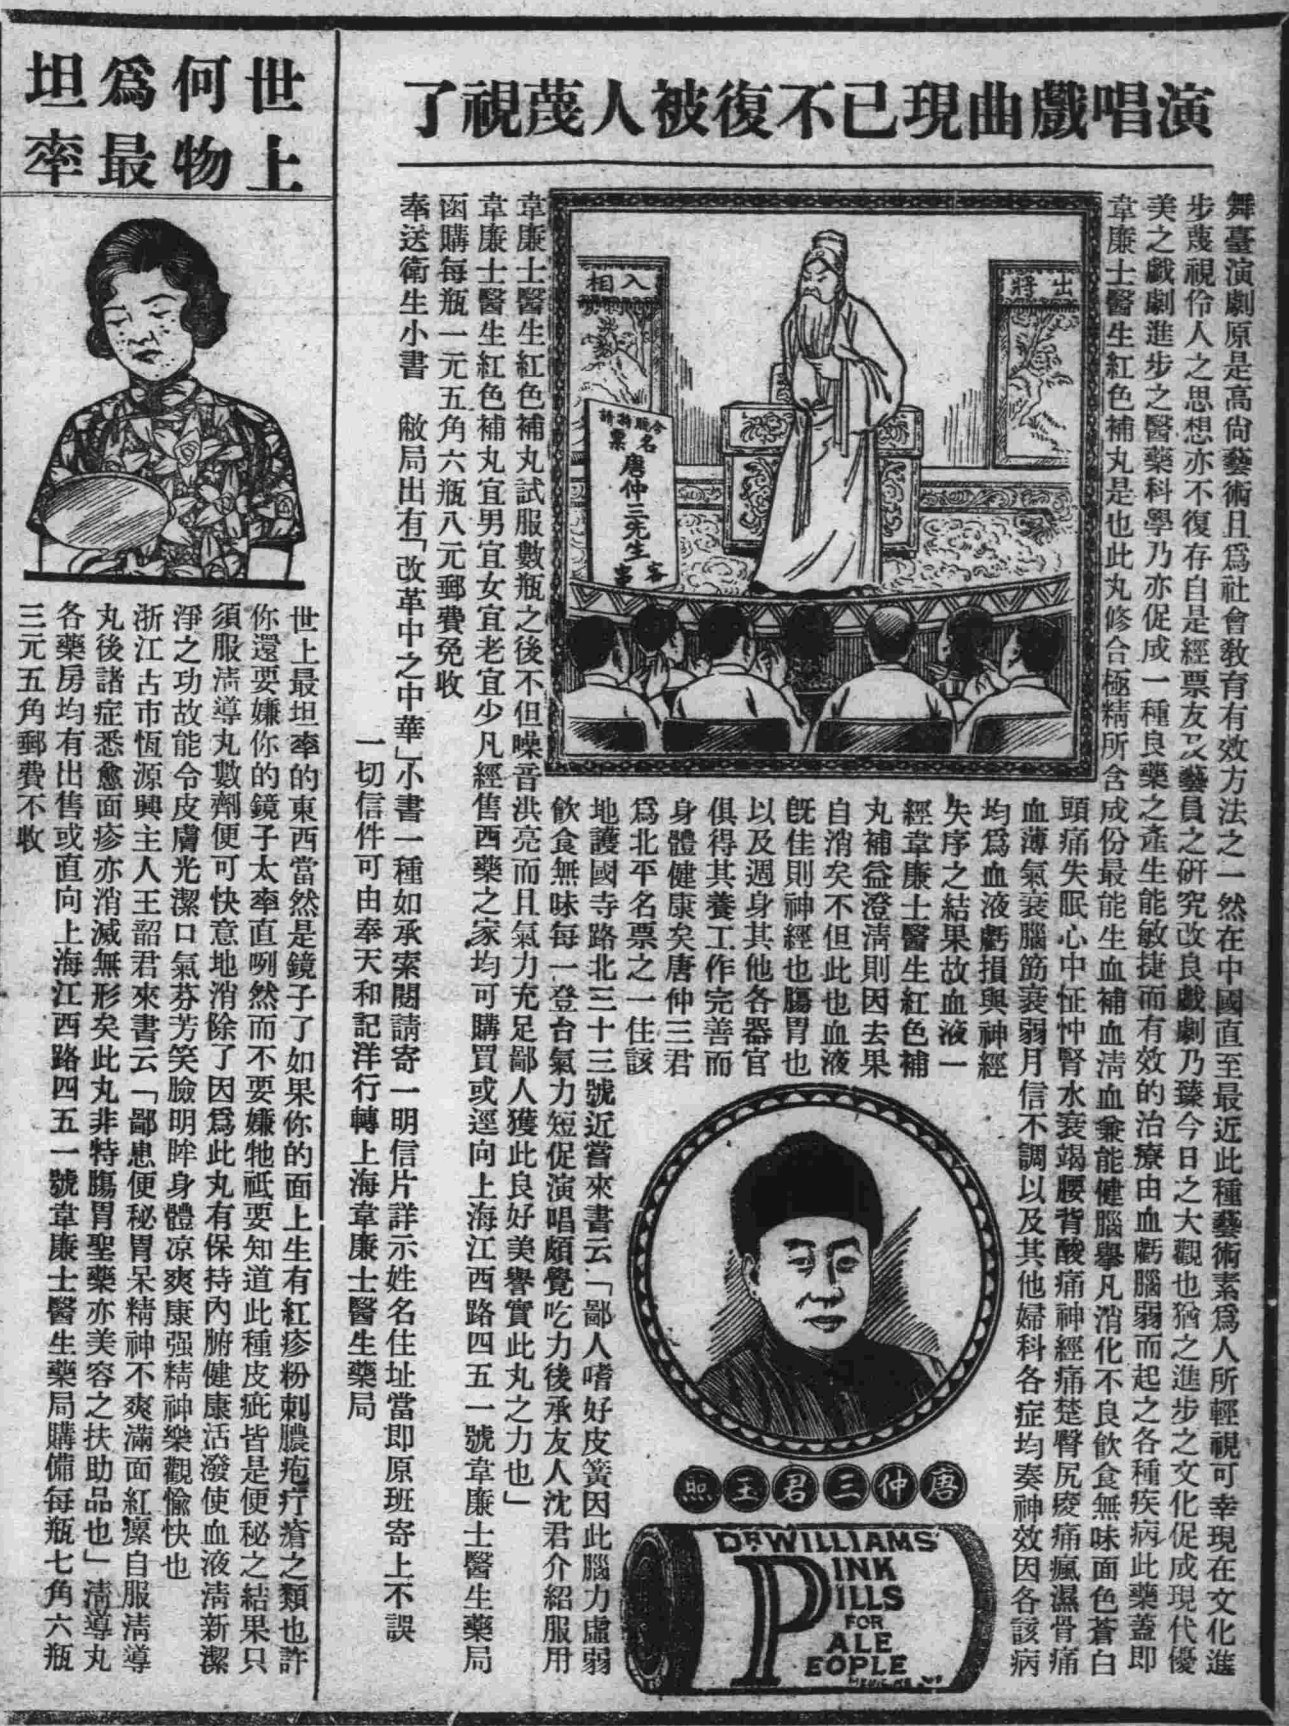 演唱戲曲現已不復被人蔑視了
舞臺演劇原是高尙藝術且爲社會敎育有效方法之一然在中國直至最近此種藝術素爲人所輕視可幸現在文化進
步蔑視伶人之思想亦不復存自是經票友及藝員之研究改良戲劇乃臻今日之大觀也猶之進步之文化促成現代優
美之戲劇進步之醫藥科學乃亦促成一種良藥之產生能敏捷而有效的治療由血虧腦弱而起之各種疾病此藥蓋即
韋廉士醫生紅色補丸是也此丸修合極精所含成份最能生血補血淸血兼能健腦舉凡消化不良飲食無味面色蒼白
頭痛失眠心中怔忡腎水衰竭腰背酸痛神經痛楚臀尻痠痛瘋濕骨痛
血薄氣衰腦筋衰弱月信不調以及其他婦科各症均奏神效因各該病
均爲血液虧損與神經
失序之結果故血液一
經韋廉士醫生紅色補
丸補益澄淸則因去果
自消矣不但此也血液
旣佳則神經也腸胃也
以及週身其他各器官
俱得其養工作完善而
身體健康矣唐仲三君
爲北平名票之一住該
地護國寺路北三十三號近嘗來書云「鄙人嗜好皮簧因此腦力虛弱
飲食無味每一登台氣力短促演唱頗覺吃力後承友人沈君介紹服用
韋廉士醫生紅色補丸試服數瓶之後不但嗓音洪亮而且氣力充足鄙人獲此良好美譽實此丸之力也」
韋廉士醫生紅色補丸宜男宜女宜老宜少凡經售西藥之家均可購買或逕向上海江西路四五一號韋廉士醫生藥局
函購每瓶一元五角六瓶八元郵費免收
奉送衛生小書 敝局出有「改革中之中華」小書一種如承索閱請寄一明信片詳示姓名住址當即原班寄上不誤
一切信件可由奉天和記洋行轉上海韋廉士醫生藥局
出將
入相
特請
名票
唐仲三先生
客串
唐仲三君玉照
DR WILLIAMS'
PINK
PILLS
FOR
PALE
PEOPLE
世上何物爲最坦率
世上最坦率的東西當然是鏡子了如果你的面上生有紅疹粉刺膿疱疔瘡之類也許
你還要嫌你的鏡子太率直咧然而不要嫌牠祇要知道此種皮疵皆是便秘之結果只
須服淸導丸數劑便可快意地消除了因爲此丸有保持內腑健康活潑使血液淸新潔
淨之功故能令皮膚光潔口氣芬芳笑臉明眸身體凉爽康强精神樂觀愉快也
浙江古市恆源興主人王韶君來書云「鄙患便秘胃呆精神不爽滿面紅瘰自服淸導
丸後諸症悉愈面疹亦消滅無形矣此丸非特腸胃聖藥亦美容之扶助品也」淸導丸
各藥房均有出售或直向上海江西路四五一號韋廉士醫生藥局購備每瓶七角六瓶
三元五角郵費不收